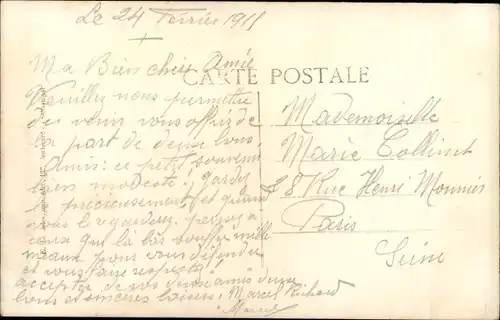 Le 24 Février 1911
CARTE POSTALE
Ma Bien chère Amie
Veuillez nous permettre
de vous offrir de
la part de deux bons
Amis: ce petit souvenir
bien modeste; Gardez
le précieusement et quand
vous le regarderez pensez a
ceux qui là bas souffre mille
meaux pour vous défendre
et vous faire respecté
accepter de vos deux amis deux
bons et sincères baisers: Marcel Richard
Marcel
Mademoiselle
Marie Collinet
28 Rue Henri Monnier
Paris
Seine